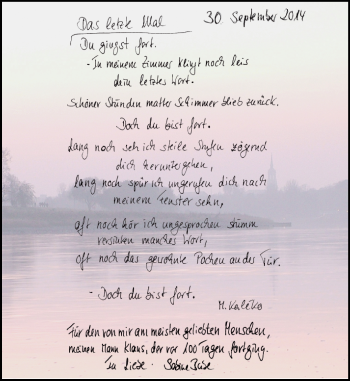 Das letzte Mal
30. September 2014
Du gingst fort.
- In meinem Zimmer klingt noch leis
dein letztes Wort.
Schöner Stunden matter Schimmer blieb zurück.
Doch du bist fort.
Lang noch seh ich steile Stufen zögernd
dich heruntergehen,
lang noch spür ich ungerufen dich nach
meinem Fenster sehn,
oft noch hör ich ungesprochen stumm
versinken manches Wort,
oft noch das gewohnte Pochen an der Tür.
- Doch du bist fort.
M. Kaléko
Für den von mir am meisten geliebten Menschen,
meinen Mann Klaus, der vor 100 Tagen fortging.
In Liebe Sabine